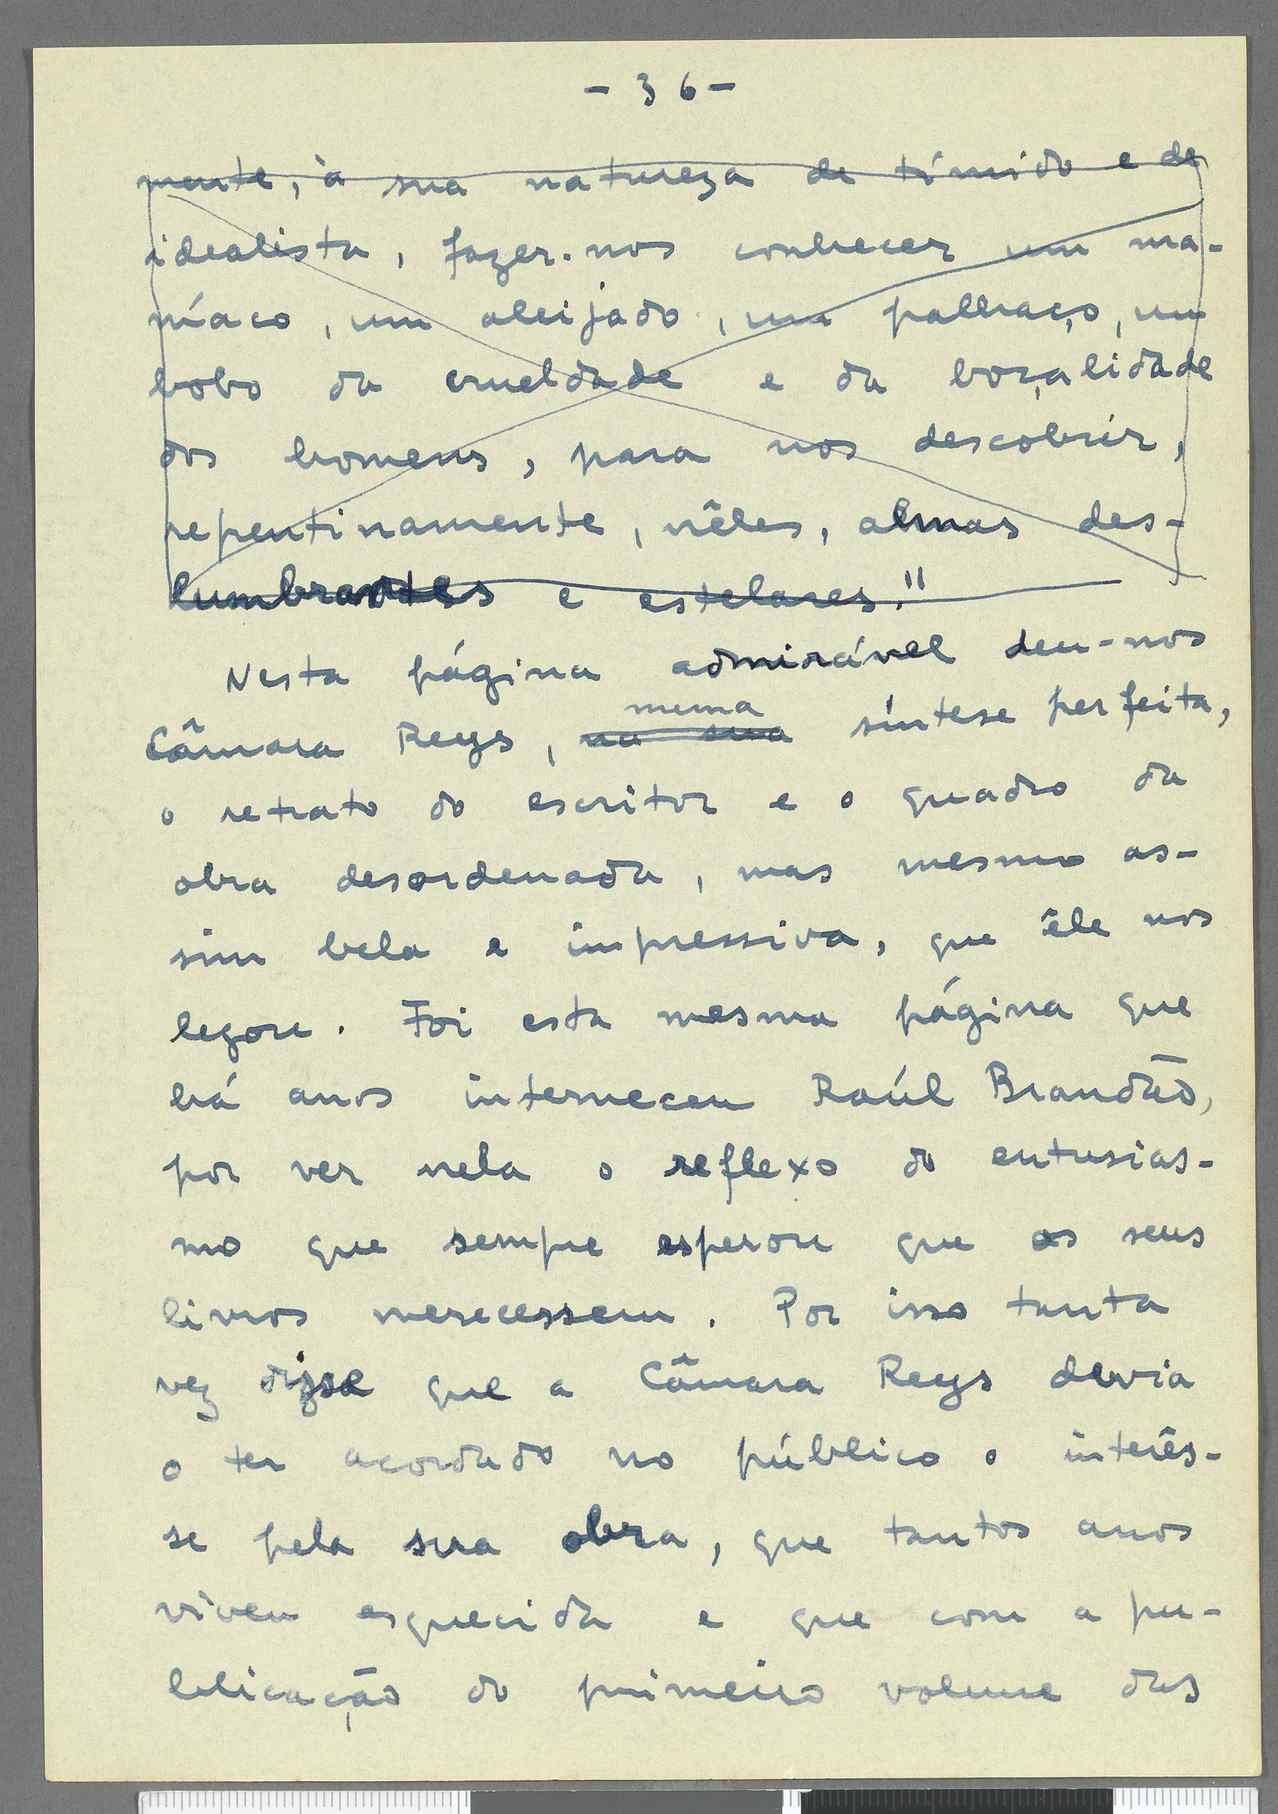 - 36 -
mente, à sua natureza de tímido e de
idealista, fazer-nos conhecer um ma-
níaco, um aleijado, um palhaço, um
bobo da crueldade e da boçalidade
dos homens, para nos descobrir,
repentinamente, nêles, almas des-
lumbrantes e estelares."
Nesta página admirável deu-nos
numa
Câmara Reys, na sua síntese perfeita,
o retrato do escritor e o quadro da
obra desordenada, mas mesmo as-
sim bela e impressiva, que êle nos
legou. Foi esta mesma página que
há anos interneceu Raúl Brandão,
por ver nela o reflexo do entusias-
mo que sempre esperou que os seus
livros merecessem. Por isso tanta
vez disse que a Câmara Reys devia
o ter acordado no público o interês-
se pela sua obra, que tantos anos
viveu esquecida e que com a pu-
blicação do primeiro volume das